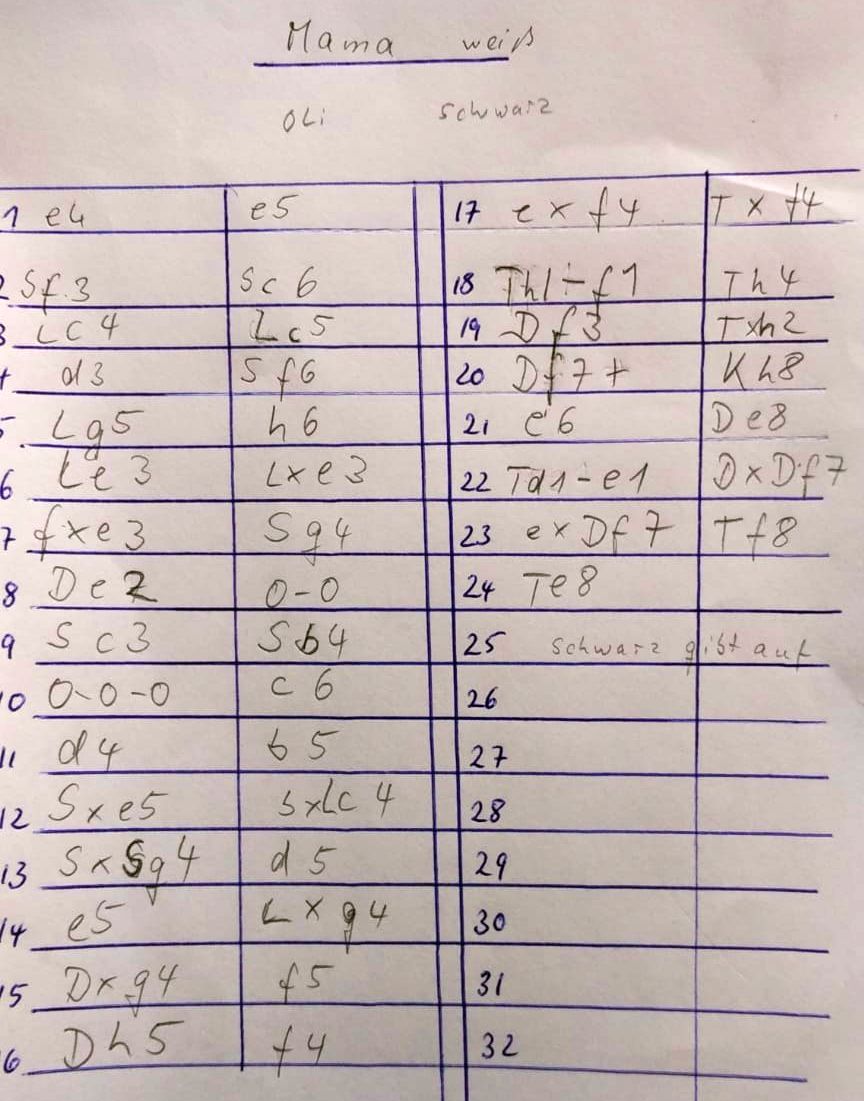 Mama weiß
Oli schwarz
1 e4 e5
2 Sf3 Sc6
3 Lc4 Lc5
4 d3 Sf6
5. Lg5 h6
6 Le3 Lxe3
7 fxe3 Sg4
8 De2 0-0
9 Sc3 Sb4
10 0-0-0 c6
11 d4 b5
12 Sxe5 bxLc4
13 SxSg4 d5
14 e5 Lxg4
15 Dxg4 f5
16 Dh5 f4
17 exf4 Txf4
18 Th1-f1 Th4
19 Df3 Txh2
20 Df7+ Kh8
21 e6 De8
22 Td1-e1 DxDf7
23 exDf7 Tf8
24 Te8
25 schwarz gibt auf
26
27
28
29
30
31
32